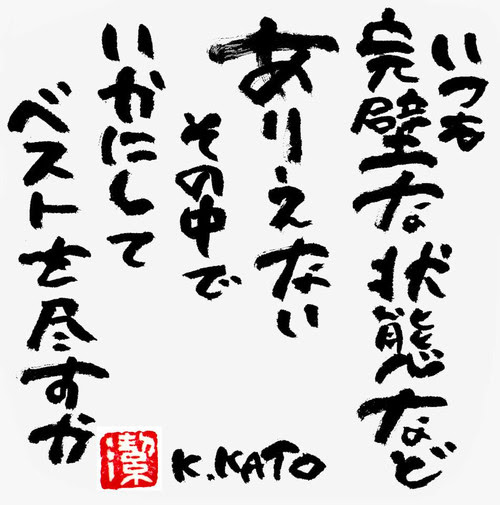 いつも
完璧な状態など
ありえない
その中で
いかにして
ベストを尽すか
潔
K.KATO